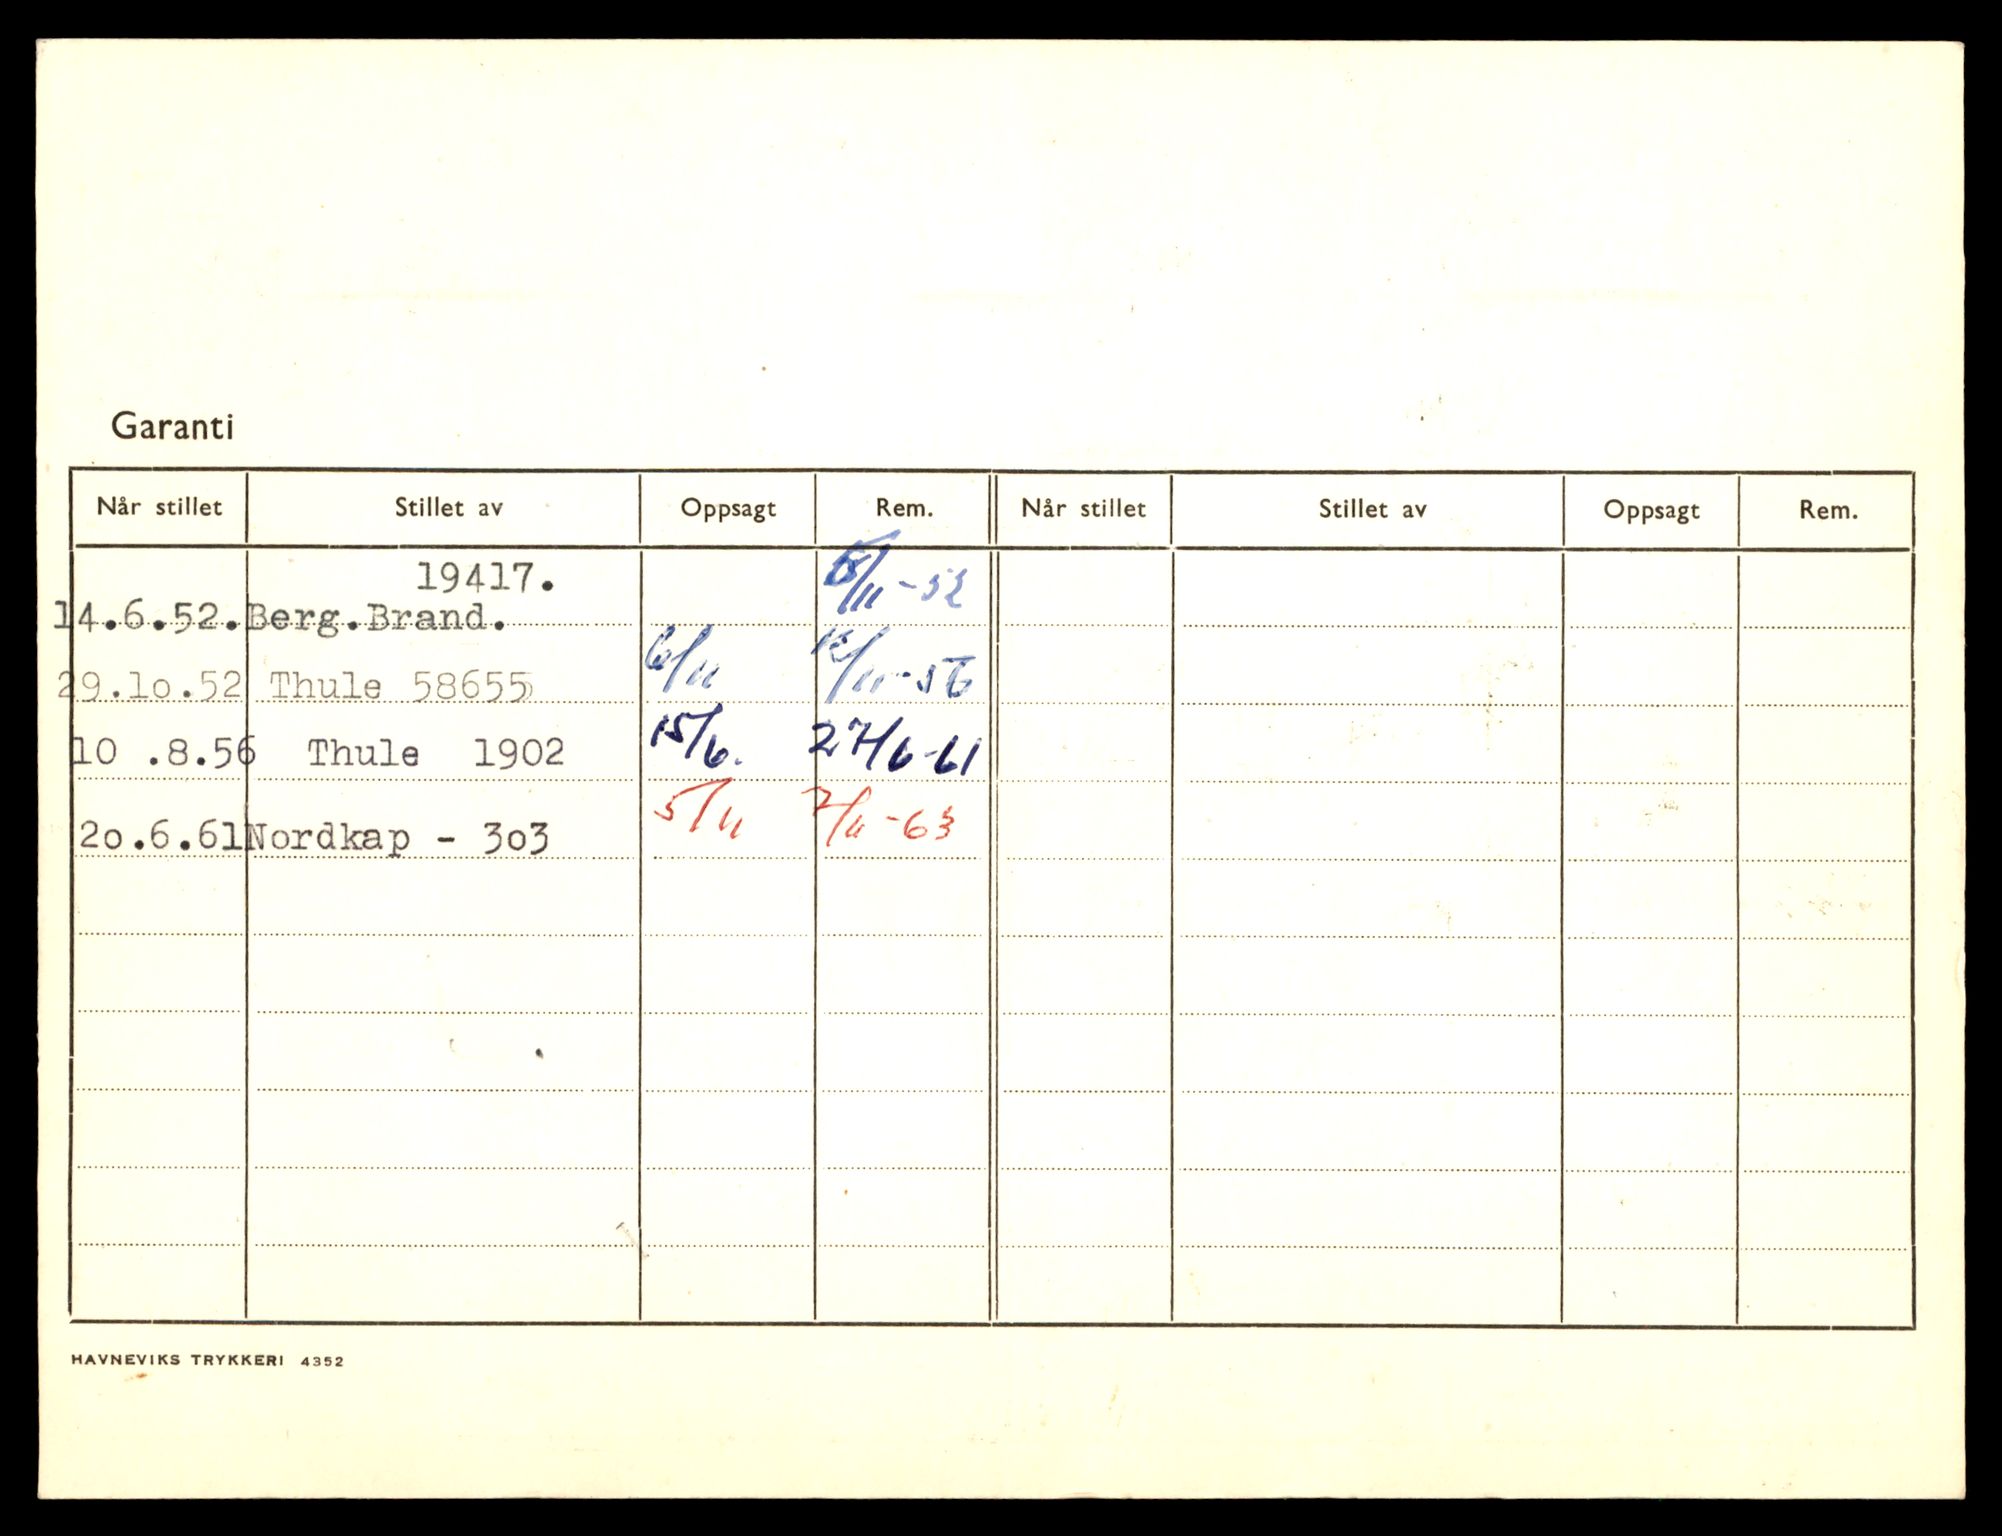 Garanti
Når stillet Stillet av Oppsagt Rem. Når stillet Stillet av Oppsagt Rem.
19417.
14.6.52. Berg.Brand. 5/11-52
29.lo.52 Thule 58655 6/11 12/11-56
10 .8.56 Thule 1902 15/6. 27/6-61
2o.6.61 Nordkap - 3o3 5/11 7/11-63
HAVNEVIKS TRYKKERI 4352